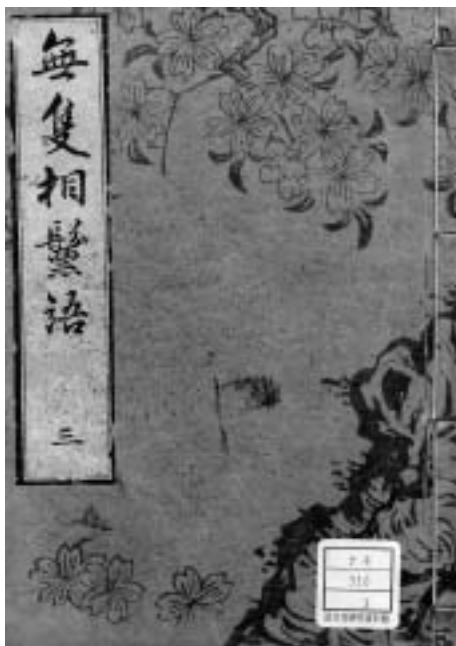 無隻相鬘語
三
310
3